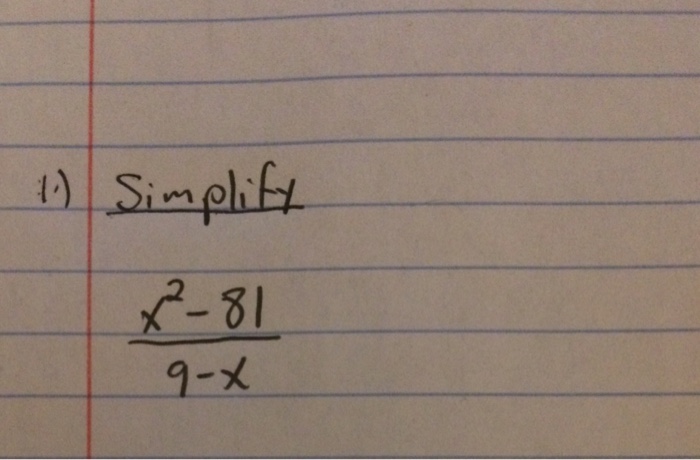 1.) Simplify
x² - 81
9 - x